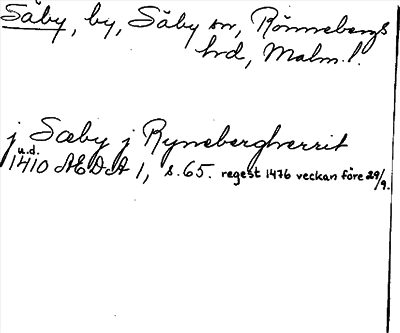 Såby, by, Såby sn, Rönnebergs
hrd, Malm. l.
j Sæby j Rynebergherrit
u.d.
1410 AEDA 1, s. 65. regest 1476 veckan före 29/9.